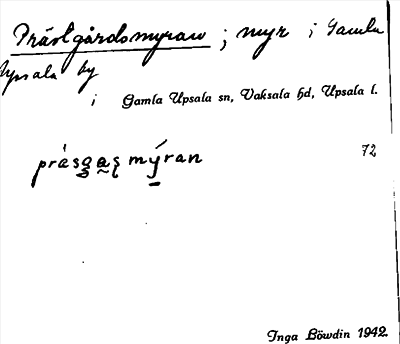 Prästgårdsmyran ; myr i Gamla
Upsala by
i Gamla Upsala sn, Vaksala hd, Upsala l.
prásgas mýran 72
Inga Löwdin 1942.